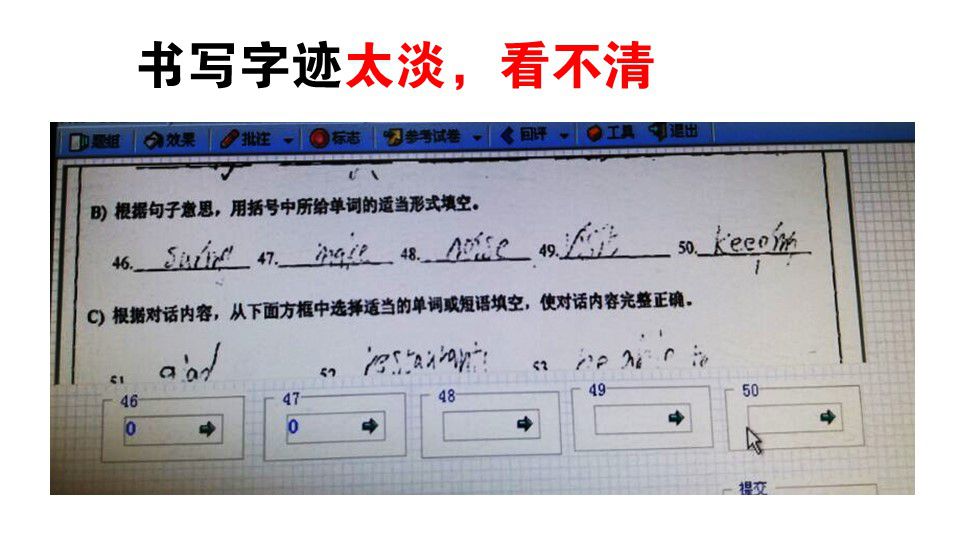 书写字迹太淡，看不清
题组 效果 批注 标志 参考试卷 回评 工具 退出
B) 根据句子意思，用括号中所给单词的适当形式填空。
46. 47. 48. noise 49. 50.
C) 根据对话内容，从下面方框中选择适当的单词或短语填空，使对话内容完整正确。
51 52 restaurants 53
46 47 48 49 50
0 0
提交